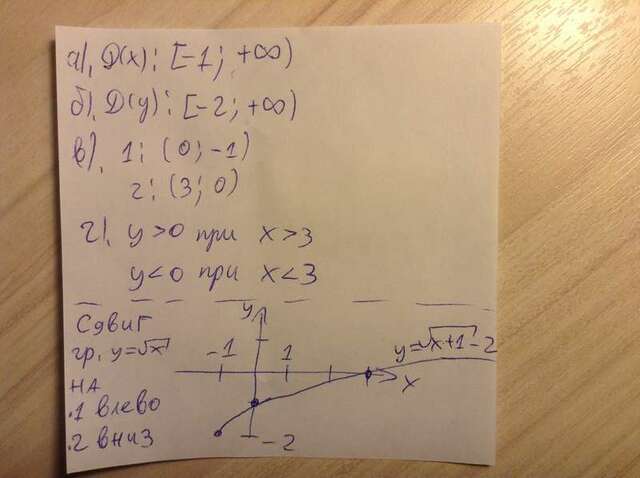 а). D(x): [-1; +∞)
б). D(y): [-2; +∞)
в). 1: (0; -1)
2: (3; 0)
г). y>0 при x>3
y<0 при x<3
Сдвиг
гр. y=√x
на
.1 влево
.2 вниз
y
-1 1
y=√x+1-2
x
-2